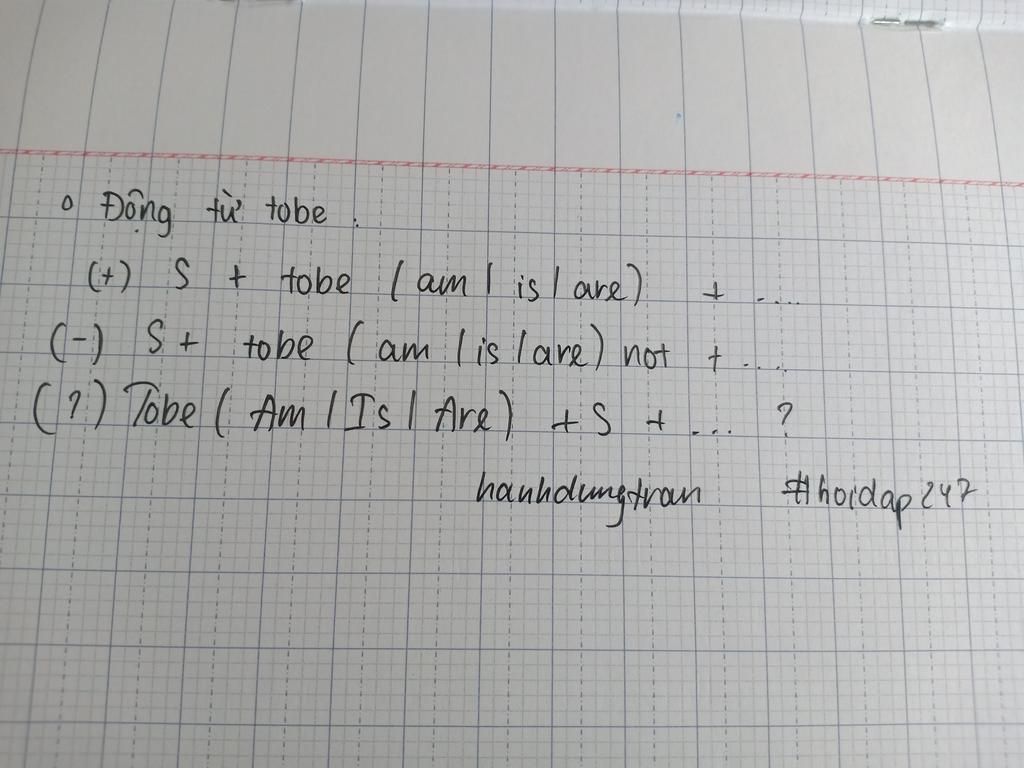 o Động từ tobe.
(+) S + tobe (am / is / are) + ....
(-) S + tobe (am / is / are) not + ....
(?) Tobe ( Am / Is / Are) + S + ... ?
hanhdungtran #hoidap247